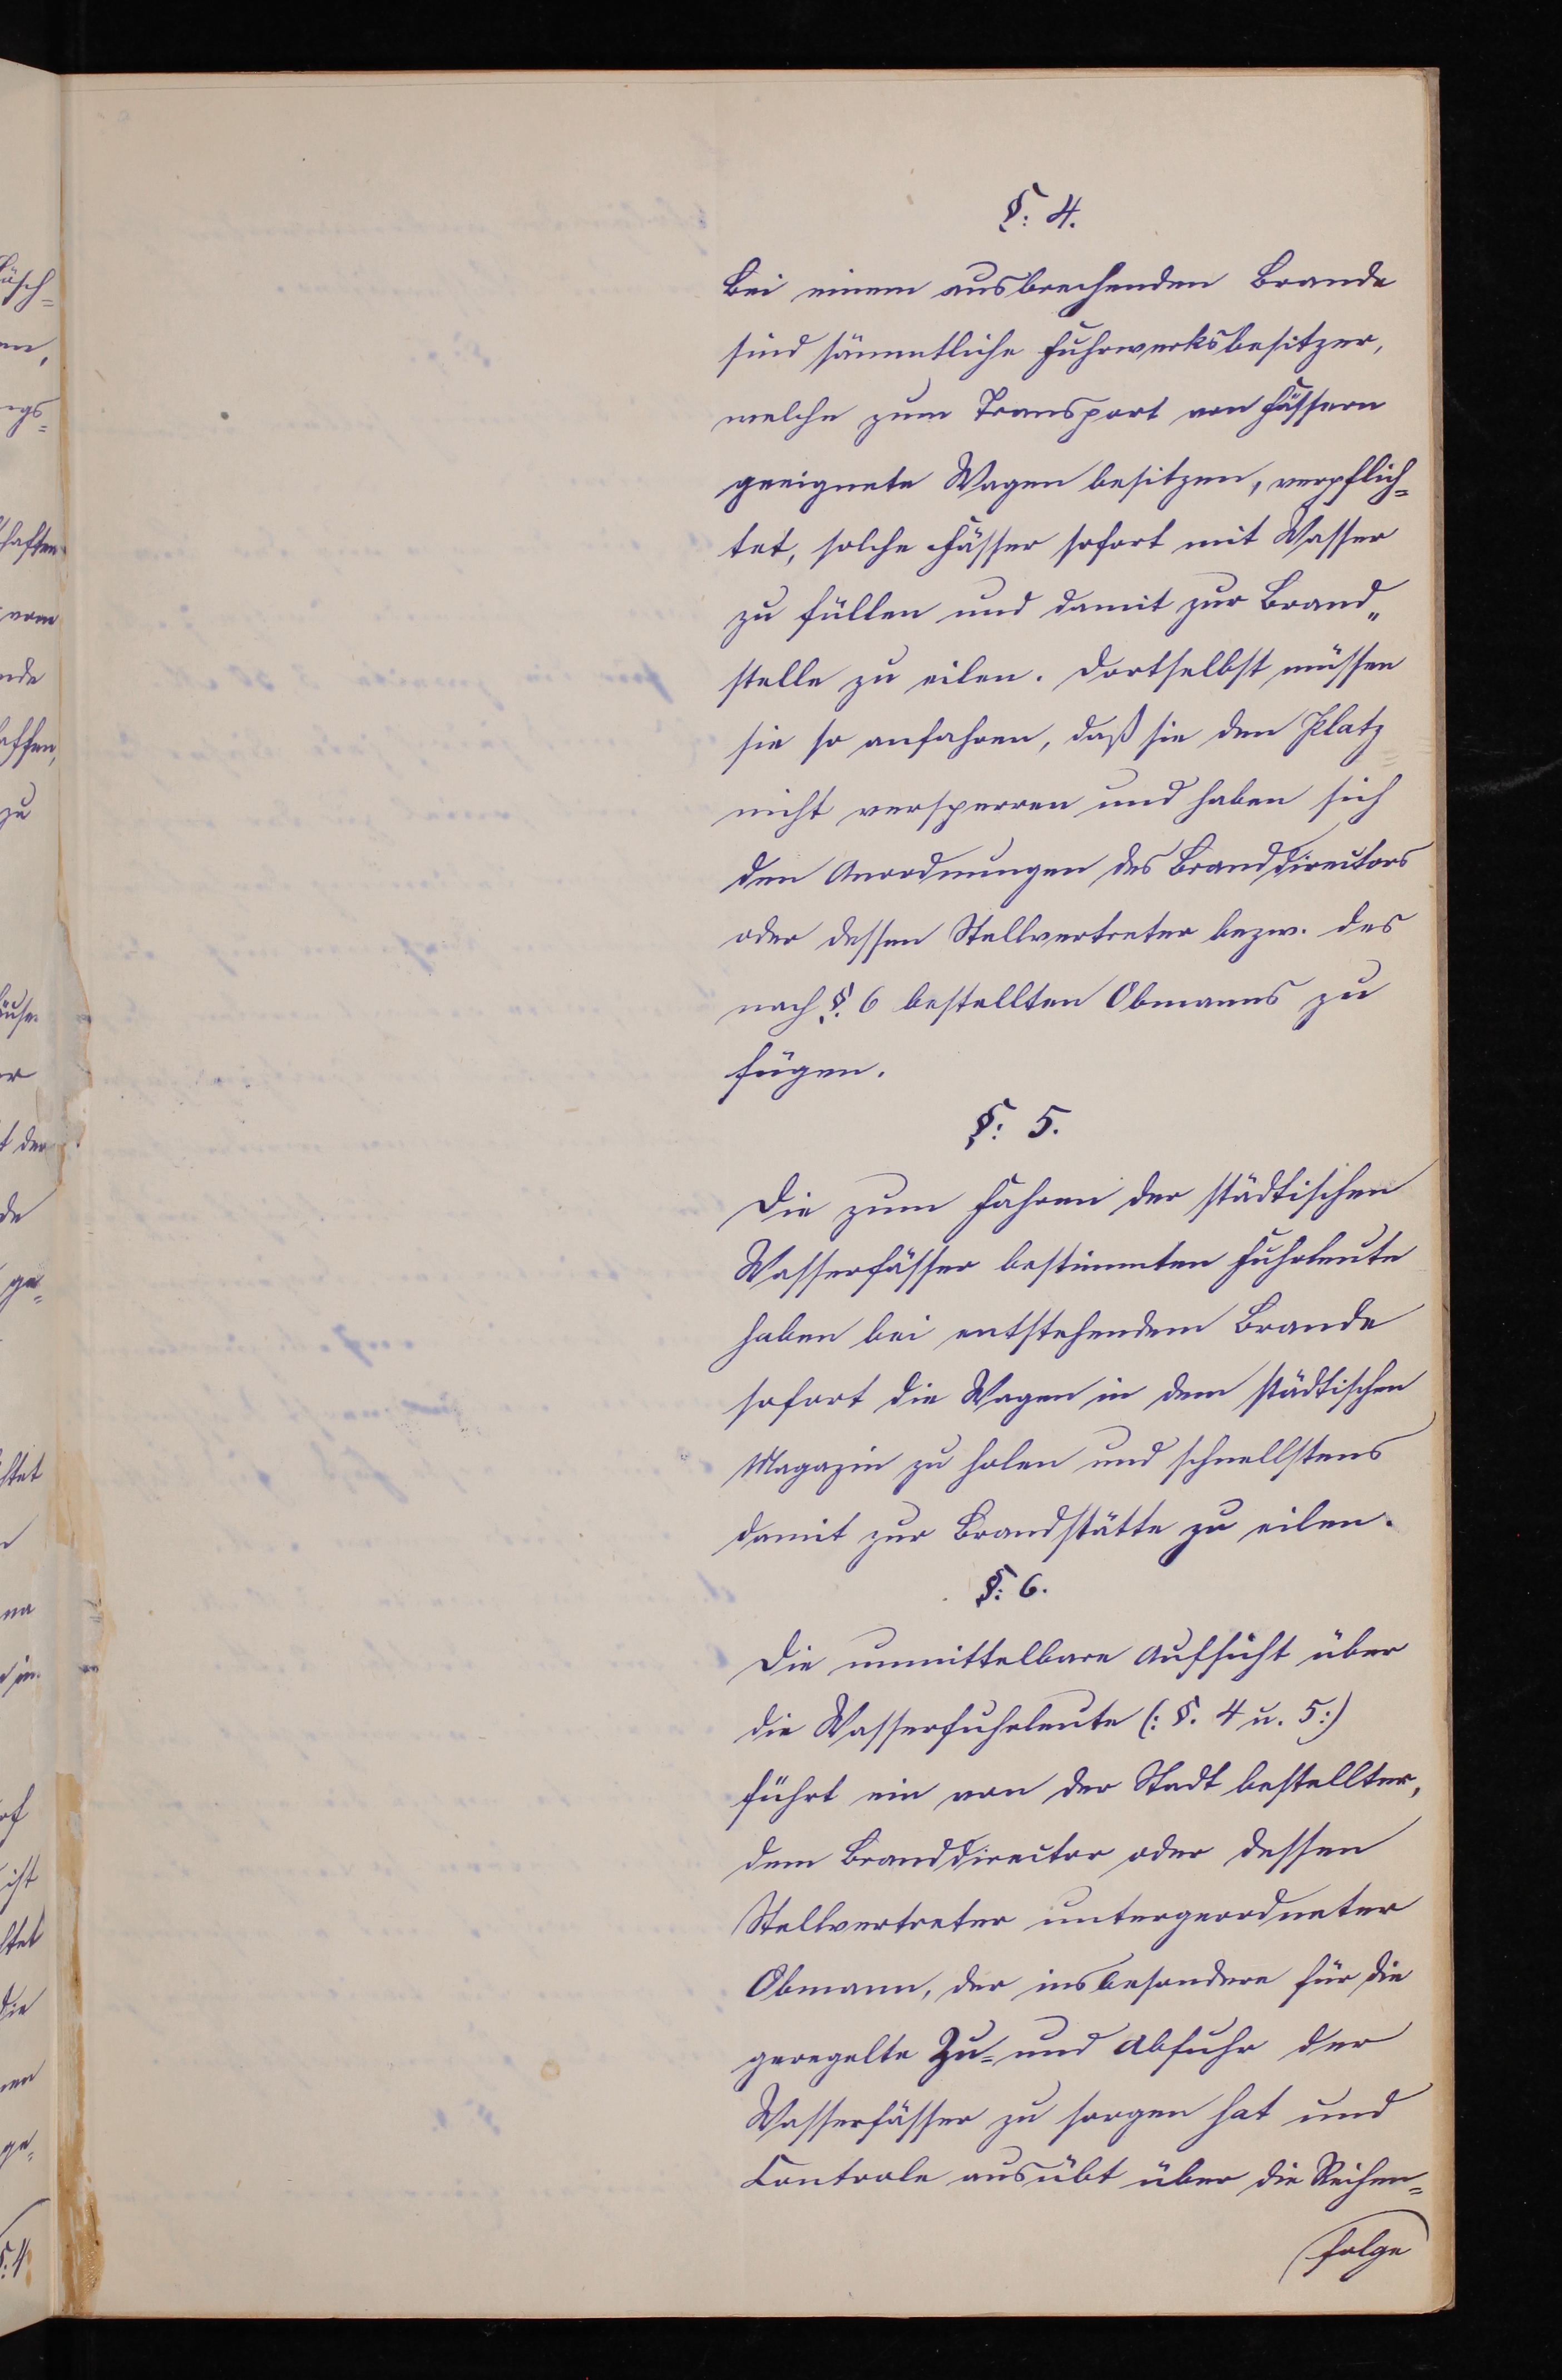 §: 4.
Bei einem ausbrechenden Brande
sind sämmtliche Fuhrwerksbesitzer,
welche zum Transport von Fässern
geeignete Wagen besitzen, verpflich=
tet, solche Fässer sofort mit Wasser
zu füllen und damit zur Brand„
stelle zu eilen. Dortselbst müssen
sie so anfahren, daß sie den Platz
nicht versperren und haben sich
den Anordnungen des Branddirectors
oder dessen Stellvertreter bezw. des
nach §. 6 bestellten Obmanns zu
fügen.
§: 5.
Die zum Fahren der städtischen
Wasserfässer bestimmten Fuhrleute
haben bei entstehendem Brande
sofort die Wagen in dem städtischen
Magazin zu holen und schnellstens
damit zur Brandstätte zu eilen.
§: 6.
Die unmittelbare Aufsicht über
die Wasserfuhrleute (: §. 4 u. 5:)
führt ein von der Stadt bestellter,
dem Branddirector oder dessen
Stellvertreter untergeordneter
Obmann, der insbesondere für die
geregelte Zu= und Abfuhr der
Wasserfässer zu sorgen hat und
Controle ausübt über die Reihen=
folge